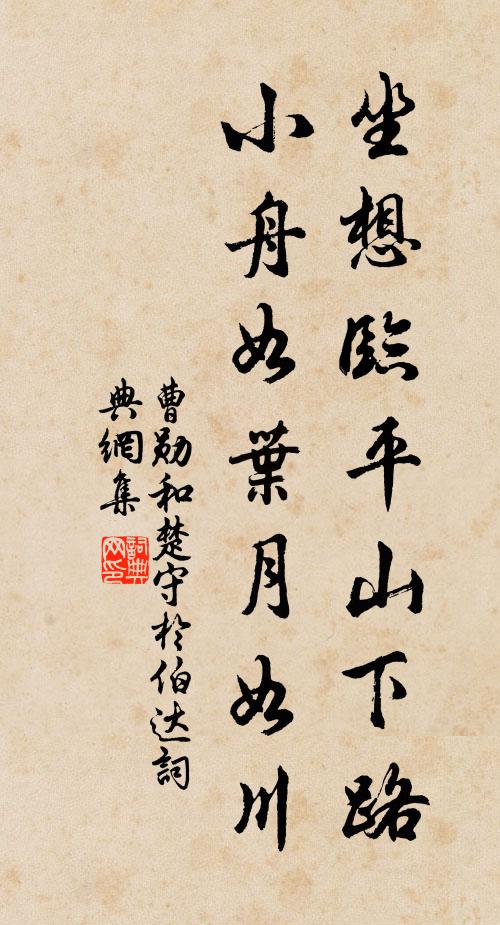 坐想臨平山下路
小舟如葉月如川
曹勛和楚守於伯达詞
典網集
詞典网印